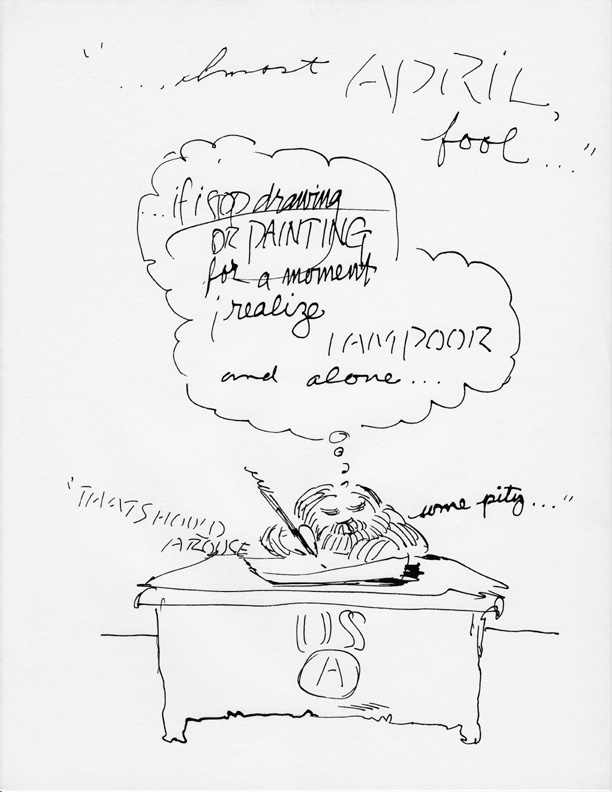 "...almost APRIL,
fool..."
...if i stop drawing
OR PAINTING
for a moment
i realize
I AM POOR
and alone...
"THAT SHOULD
AROUSE
some pity..."
US
A